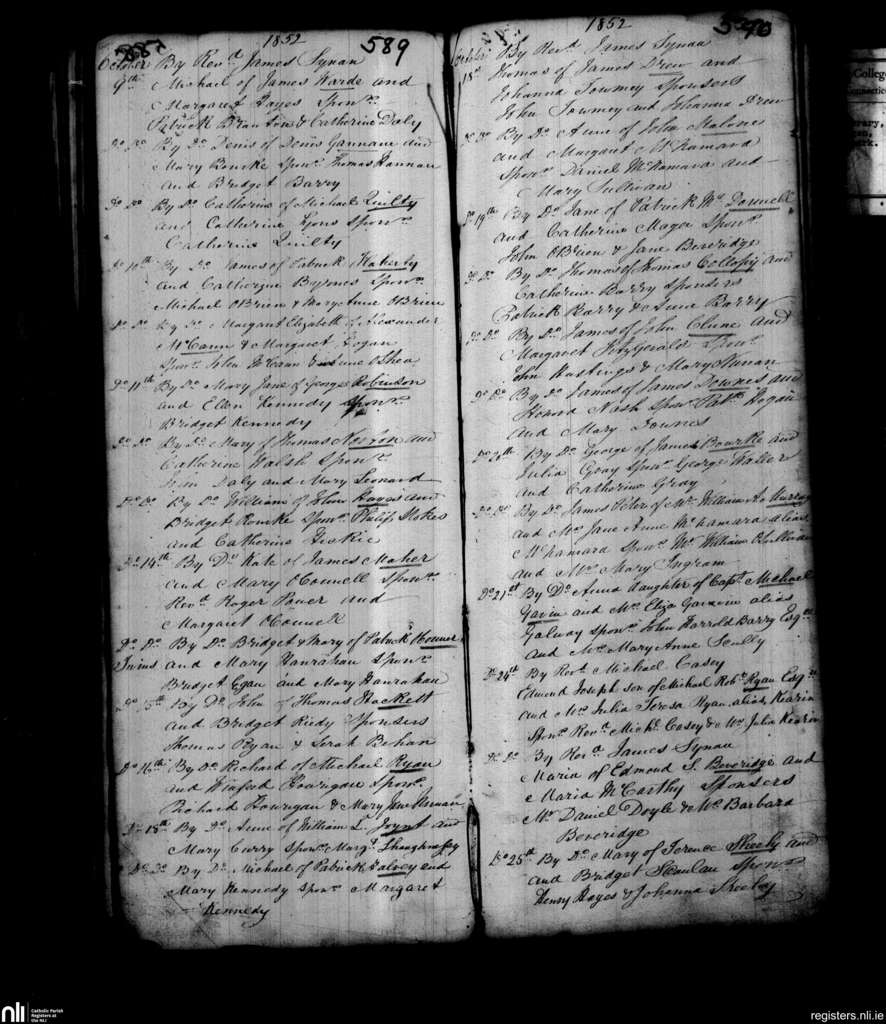 1852
589
October By Revd. James Synan
9th Michael of James Warde and
Margaret Hayes Sponrs.
Patrick Branton & Catherine Daly
Do. Do. By Do. Denis of Denis Gannane and
Mary Bourke Sponrs. Thomas Hannan
and Bridget Barry
Do. Do. By Do. Catherine of Michael Quilty
and Catherine Lyons Sponrs.
Catherine Quilty
Do. 10th By Do. James of Patrick
and Catherine Byrnes Sponrs.
Michael OBrien & Mary Anne OBrien
Do. Do. By Do. Margaret Elizabeth of Alexander
McCann & Margaret Hogan
Sponrs. John McCann & Anne OShea
Do. 11th By Do. Mary Jane of George Robinson
and Ellen Kennedy Sponrs.
Bridget Kennedy
Do. Do. By Do. Mary of Thomas and
Catherine Walsh Sponrs.
Daly and Mary Leonard
Do. Do. By Do. William of John Hayes and
Bridget Rourke Sponrs. Philip Stokes
and Catherine
Do. 14th By Do. Kate of James Maher
and Mary OConnell Sponrs.
Revd. Roger Power and
Margaret OConnell
Do. Do. By Do. Bridget & Mary of Patrick
Twins and Mary Hanrahan Sponrs.
Bridget Egan and Mary Hanrahan
Do. 15th By Do. John of Thomas Hackett
and Bridget Reidy Sponsers
Thomas Ryan & Sarah Behan
Do. 16th By Do. Richard of Michael Ryan
and Winifred Hourigan Sponrs.
Richard Hourigan & Mary Jane
Do. 18th By Do. Anne of William L. Joynt and
Mary Curry Sponrs. Margt. Shaughnessy
Do. Do. By Do. Michael of Patrick Falvey and
Mary Kennedy Sponrs. Margaret
Kennedy
1852
590
October By Revd. James Synan
18th Thomas of James Drew and
Johanna Twomey Sponsers
John Twomey and Johanna Drew
Do. Do. By Do. Anne of John Malone
and Margaret McNamara
Sponrs. Daniel McNamara and
Mary Sullivan
Do. 19th By Do. Jane of Patrick Mc Donnell
and Catherine Magee Sponrs.
John OBrien & Jane Beveridge
Do. Do. By Do. Thomas of Thomas Collopy and
Catherine Barry Sponsers
Patrick Barry & Jane Barry
Do. Do. By Do. James of John Clune and
Margaret FitzGerald Sponrs.
John Hastings & Mary Nunan
Do. Do. By Do. James of James Downes and
Honora Nash Sponrs. Patk. Hogan
and Mary Downes
Do. 20th By Do. George of James Bourke and
Julia Gray Sponrs. George Waller
and Catherine Gray
Do. Do. By Do. James Peter of Mr. William A. Murray
and Mrs. Jane Anne McNamara alias
McNamara Sponrs. Mr. William
and Mrs. Mary Ingram
Do. 21st By Do. Anna Daughter of Capt. Michael
Gavin and Mrs. Eliza Gavin alias
Galway Sponrs. John Harrold Barry Esqre.
and Mrs. Mary Anne Scully
Do. 24th By Revd. Michael Casey
Edmund Joseph son of Michael Robt. Ryan Esqre.
and Mrs. Julia Teresa Ryan alias Kearin
Sponrs. Revd. Michl. Casey & Mrs. Julia Kearin
Do. Do. By Revd. James Synan
Maria of Edmond S. Beveridge and
Maria McCarthy Sponsers
Mr. Daniel Doyle & Mrs. Barbara
Beveridge
Do. 25th By Do. Mary of Terence Sheehy and
and Bridget Scanlan Sponrs.
Henry Hayes & Johanna Sheehy
nli
Catholic Parish
Registers at
the NLI
registers.nli.ie